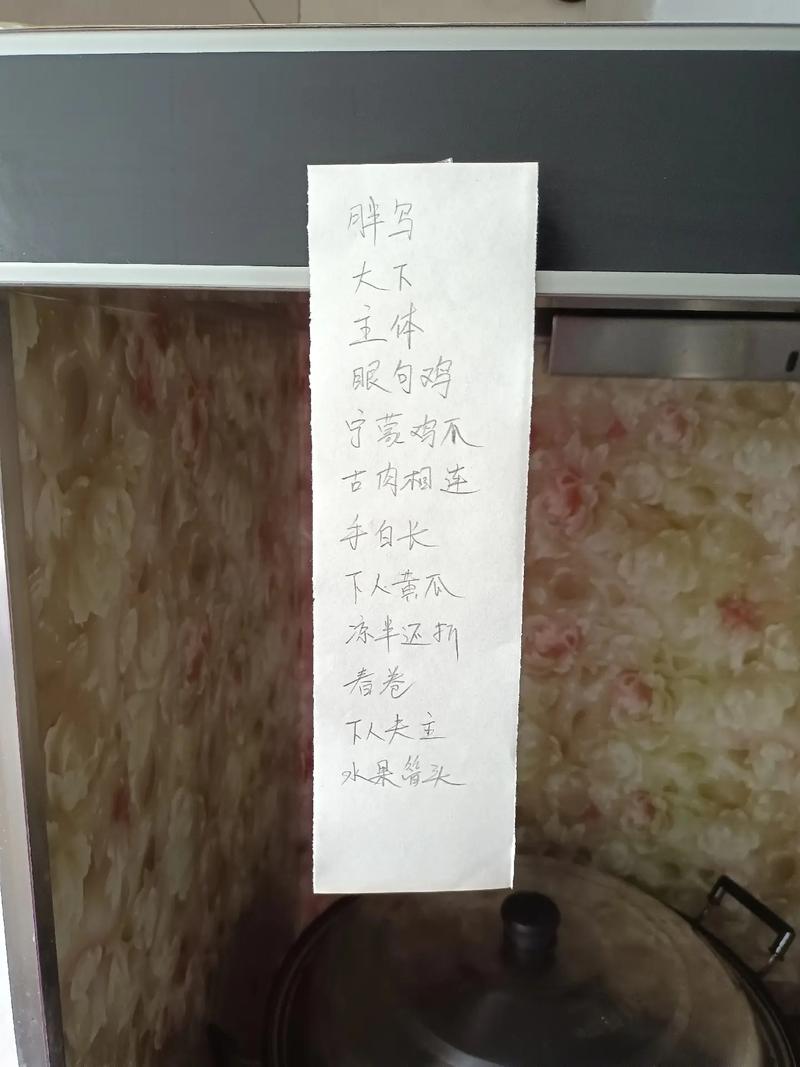 胖鸟
大下
主体
眼句鸡
宁蒙鸡爪
古肉相连
手白长
下人黄瓜
凉半还折
春卷
下人夫主
水果管头